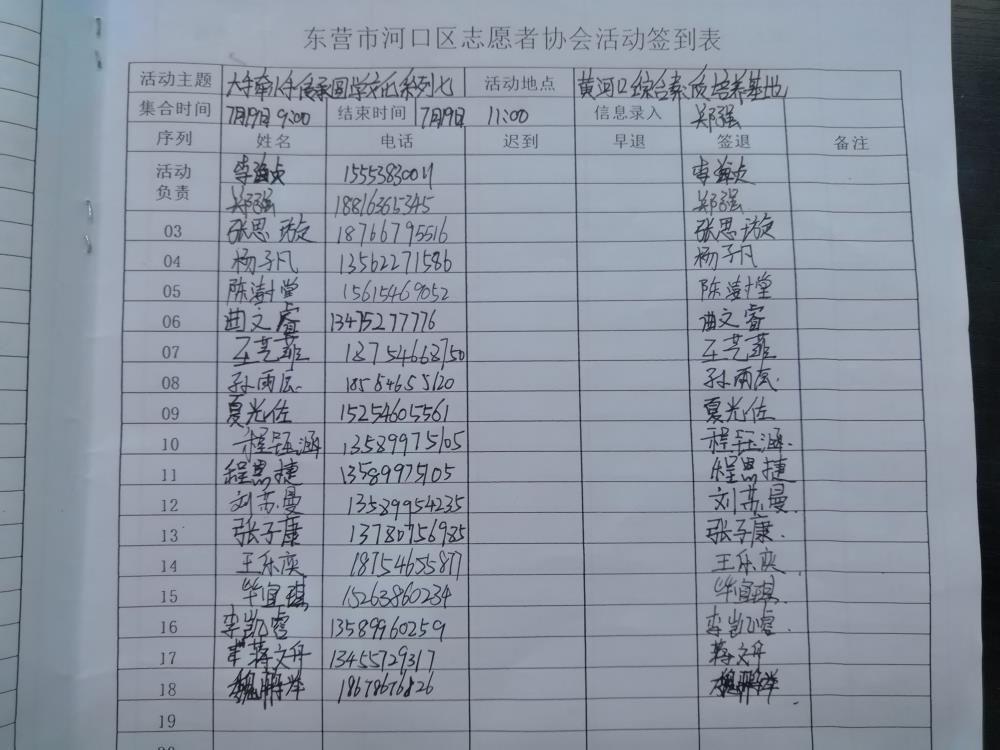 东营市河口区志愿者协会活动签到表
活动主题 大手牵小手传承国学文化系列七 活动地点 黄河口综合素质培养基地
集合时间 7月19日 9:00 结束时间 7月19日 11:00 信息录入 郑强
序列 姓名 电话 迟到 早退 签退 备注
活动
负责
李海贞 15553830011 李海贞
郑强 18816365345 郑强
03 张思璇 18766795516 张思璇
04 杨子凡 13562271586 杨子凡
05 陈澍堂 15615469052 陈澍堂
06 曲文睿 13475277776 曲文睿
07 王艺菲 18754668750 王艺菲
08 孙雨辰 18584655120 孙雨辰.
09 夏光佐 15254605561 夏光佐
10 程钰涵 13589975105 程钰涵.
11 程思捷 13589975105 程思捷
12 刘苏曼 13589954235 刘苏曼.
13 张子康 13780756985 张子康.
14 王乐奕 18754655877 王乐奕
15 毕宜琪 15263860234 毕宜琪.
16 李凯睿 13589960259 李凯睿.
17 蒋文丹 13455729317 蒋文丹
18 18678676826
19